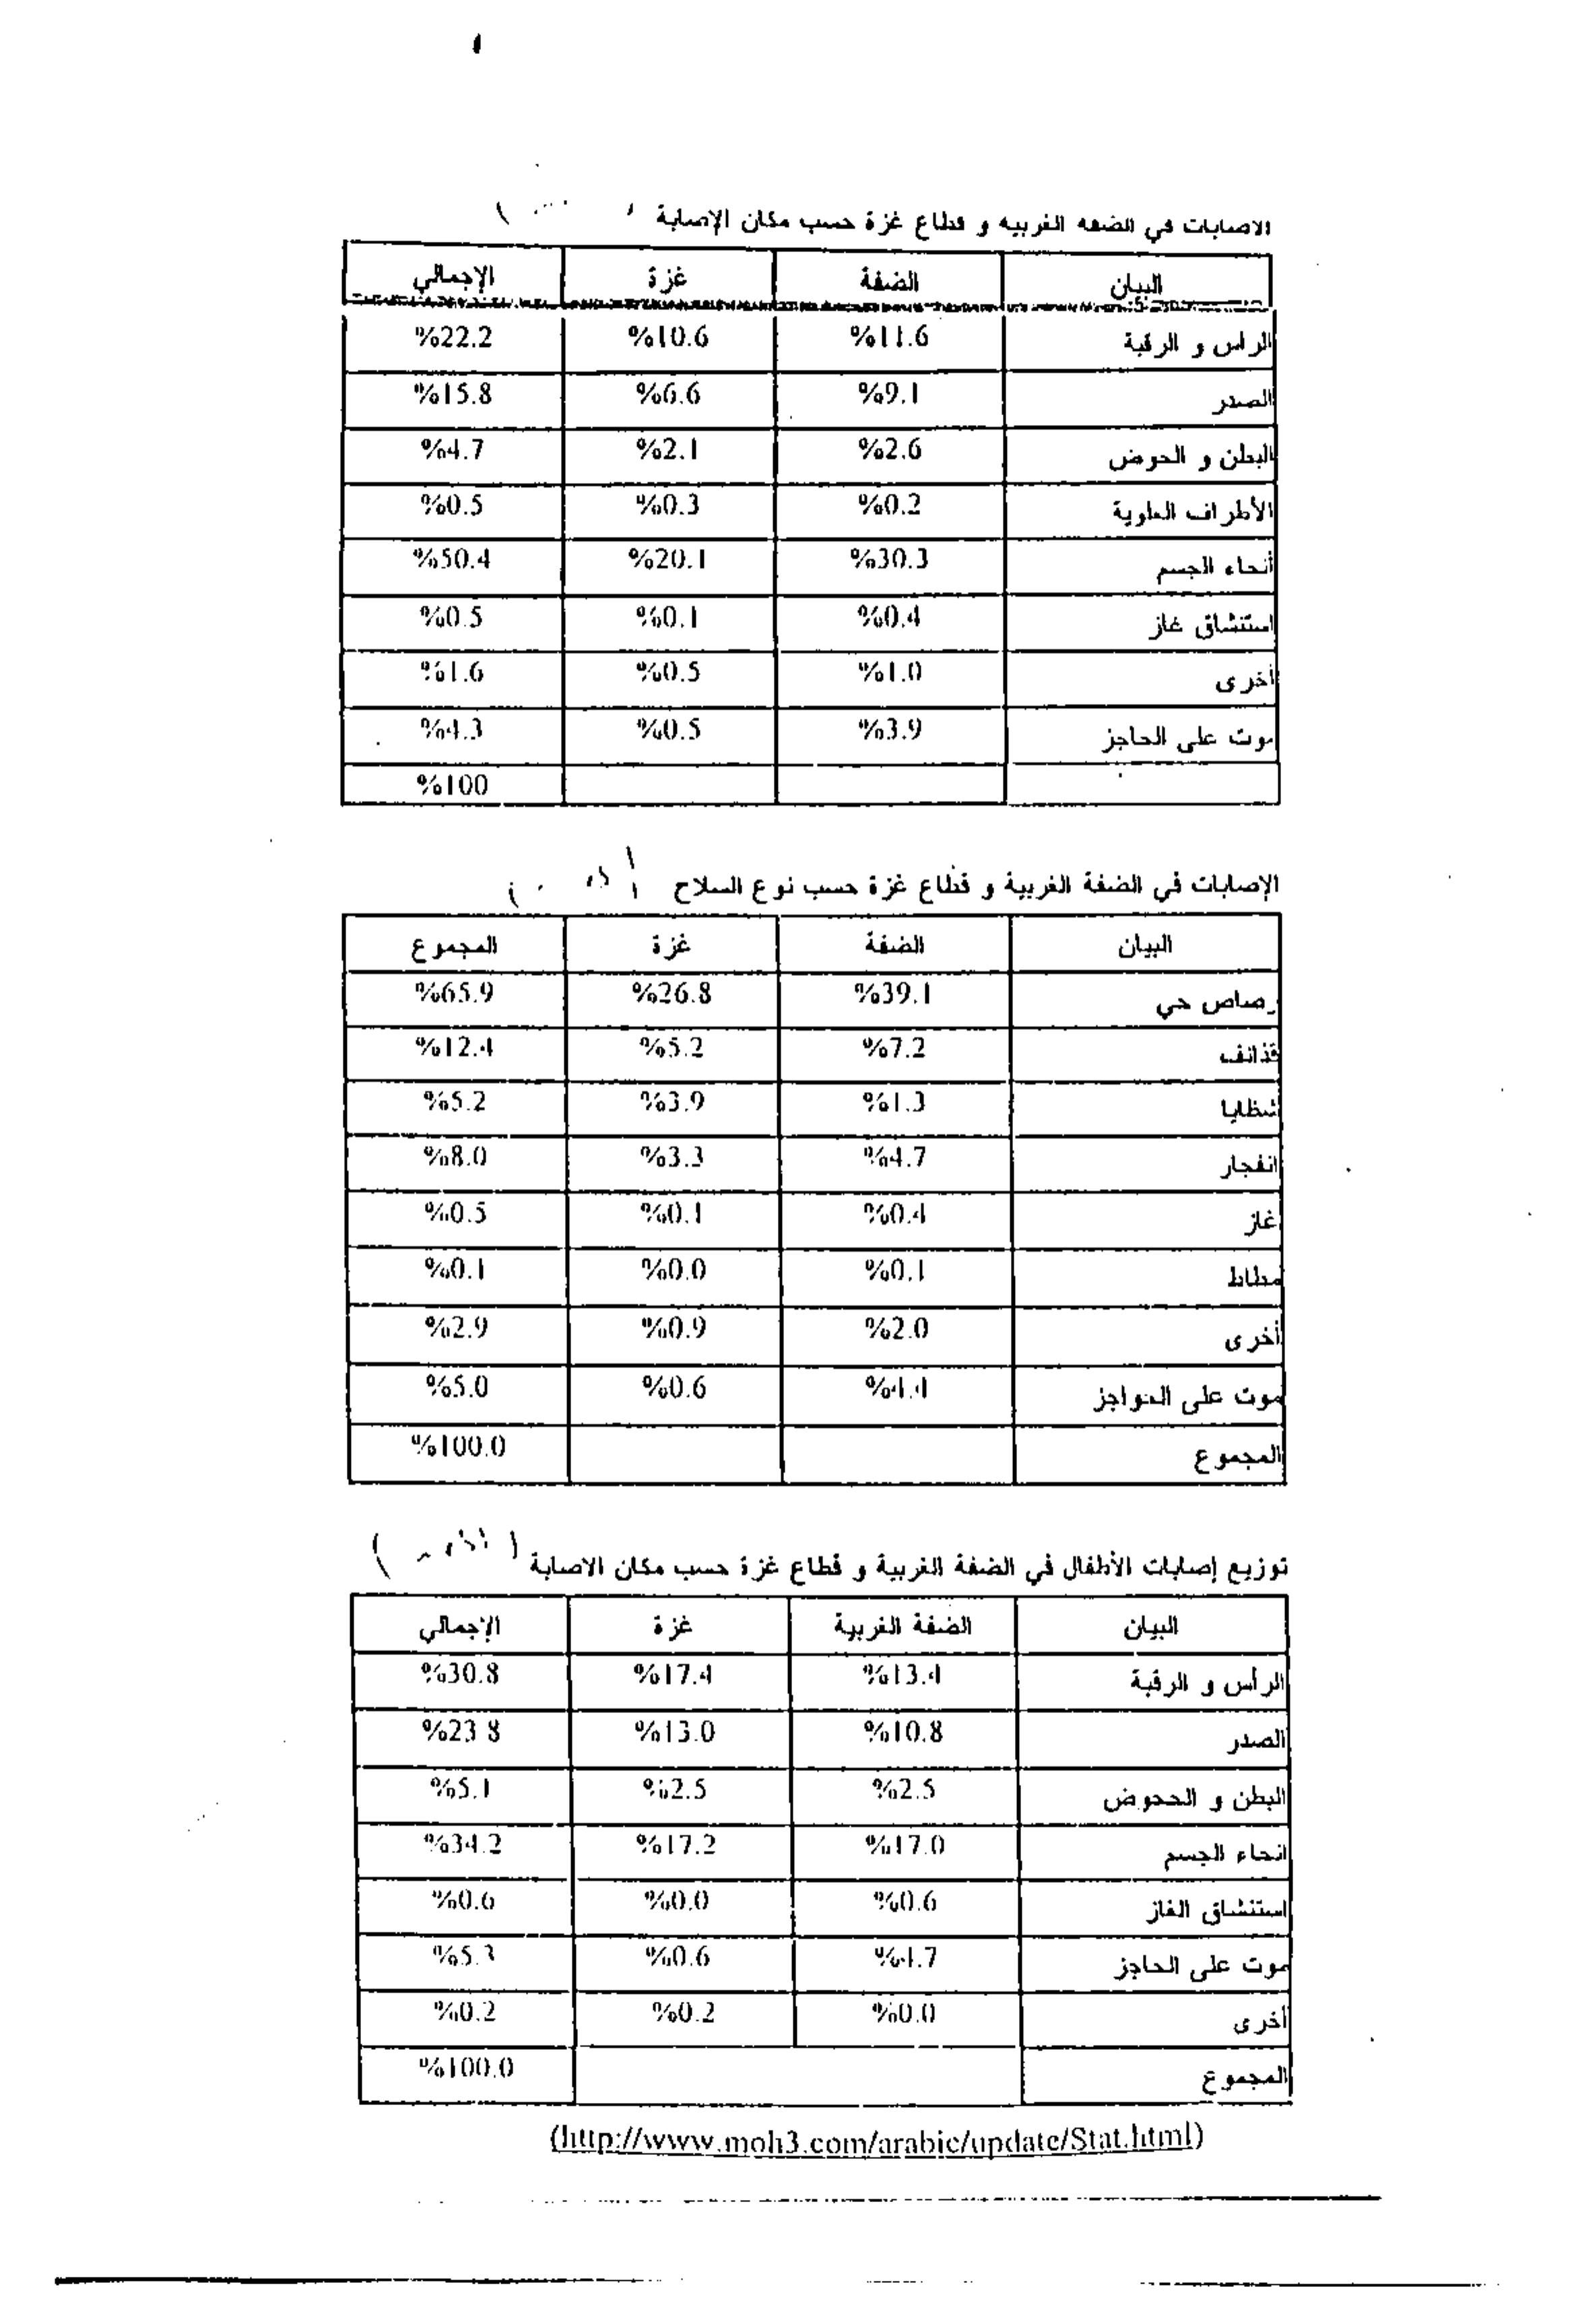 الاصابات في الضفه الغربيه و قطاع غزة حسب مكان الإصابة
البيان الضفة غزة الإجمالي
الرأس و الرقبة %11.6 %10.6 %22.2
الصدر %9.1 %6.6 %15.8
البطن و الحوض %2.6 %2.1 %4.7
الأطراف العلوية %0.2 %0.3 %0.5
أنحاء الجسم %30.3 %20.1 %50.4
استنشاق غاز %0.4 %0.1 %0.5
أخرى %1.0 %0.5 %1.6
موت على الحاجز %3.9 %0.5 %4.3
%100
الإصابات في الضفة الغربية و قطاع غزة حسب نوع السلاح
البيان الضفة غزة المجموع
رصاص حي %39.1 %26.8 %65.9
قذائف %7.2 %5.2 %12.4
شظايا %1.3 %3.9 %5.2
انفجار %4.7 %3.3 %8.0
غاز %0.4 %0.1 %0.5
مطاط %0.1 %0.0 %0.1
أخرى %2.0 %0.9 %2.9
موت على الحواجز %4.4 %0.6 %5.0
المجموع %100.0
توزيع إصابات الأطفال في الضفة الغربية و قطاع غزة حسب مكان الاصابة
البيان الضفة الغربية غزة الإجمالي
الرأس و الرقبة %13.4 %17.4 %30.8
الصدر %10.8 %13.0 %23.8
البطن و الححوض %2.5 %2.5 %5.1
انحاء الجسم %17.0 %17.2 %34.2
استنشاق الغاز %0.6 %0.0 %0.6
موت على الحاجز %4.7 %0.6 %5.3
أخرى %0.0 %0.2 %0.2
المجموع %100.0
(http://www.moh3.com/arabic/update/Stat.html)